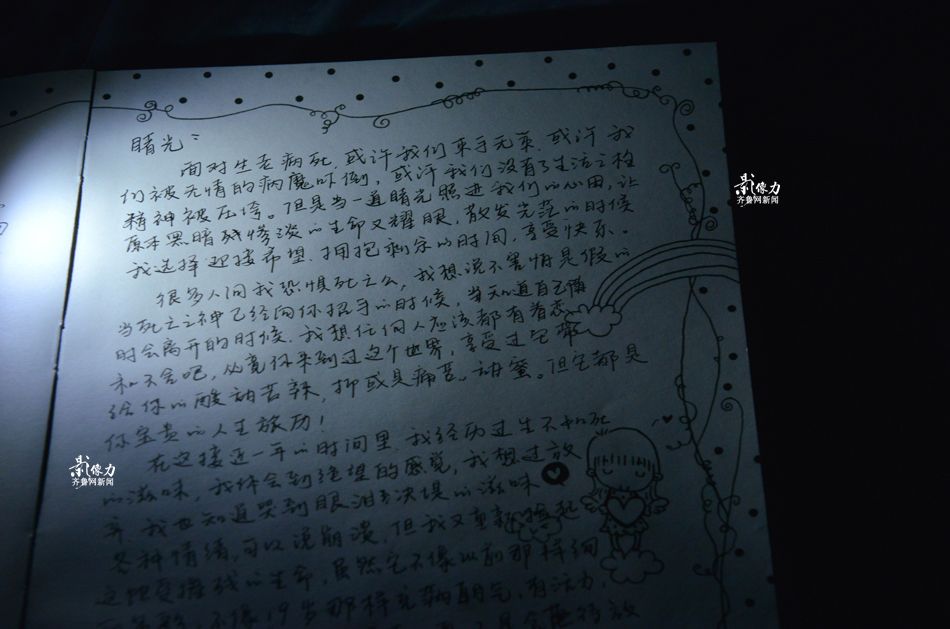 曙光：
面对生老病死，或许我们束手无策，或许我
们被无情的病魔吓倒，或许我们没有了生活之栓
精神被压垮。但是当一道曙光照进我们的心田，让
原本黑暗残惨淡的生命又耀眼，散发光茫的时候
我选择迎接希望，拥抱剩余的时间，享受快乐。
很多人问我恐惧死亡么，我想说不害怕是假的
当死亡之神已经向你招手的时候，当知道自己随
时会离开的时候，我想任何人应该都有着恋
和不舍吧，必竟你来到过这个世界，享受过它带
给你的酸甜苦辣，抑或是痛苦、甜蜜。但它都是
你宝贵的人生旅历！
在这接近一年的时间里，我经历过生不如死
的滋味，我体会到绝望的感觉，我想过放
弃，我也知道哭到眼泪决堤的滋味
各种情绪，可以说崩溃，但我又重新撑起
这残的生命，虽然它不像以前那样
不像19岁那样充满朝气，有活力
影像力
齐鲁网新闻
影像力
齐鲁网新闻